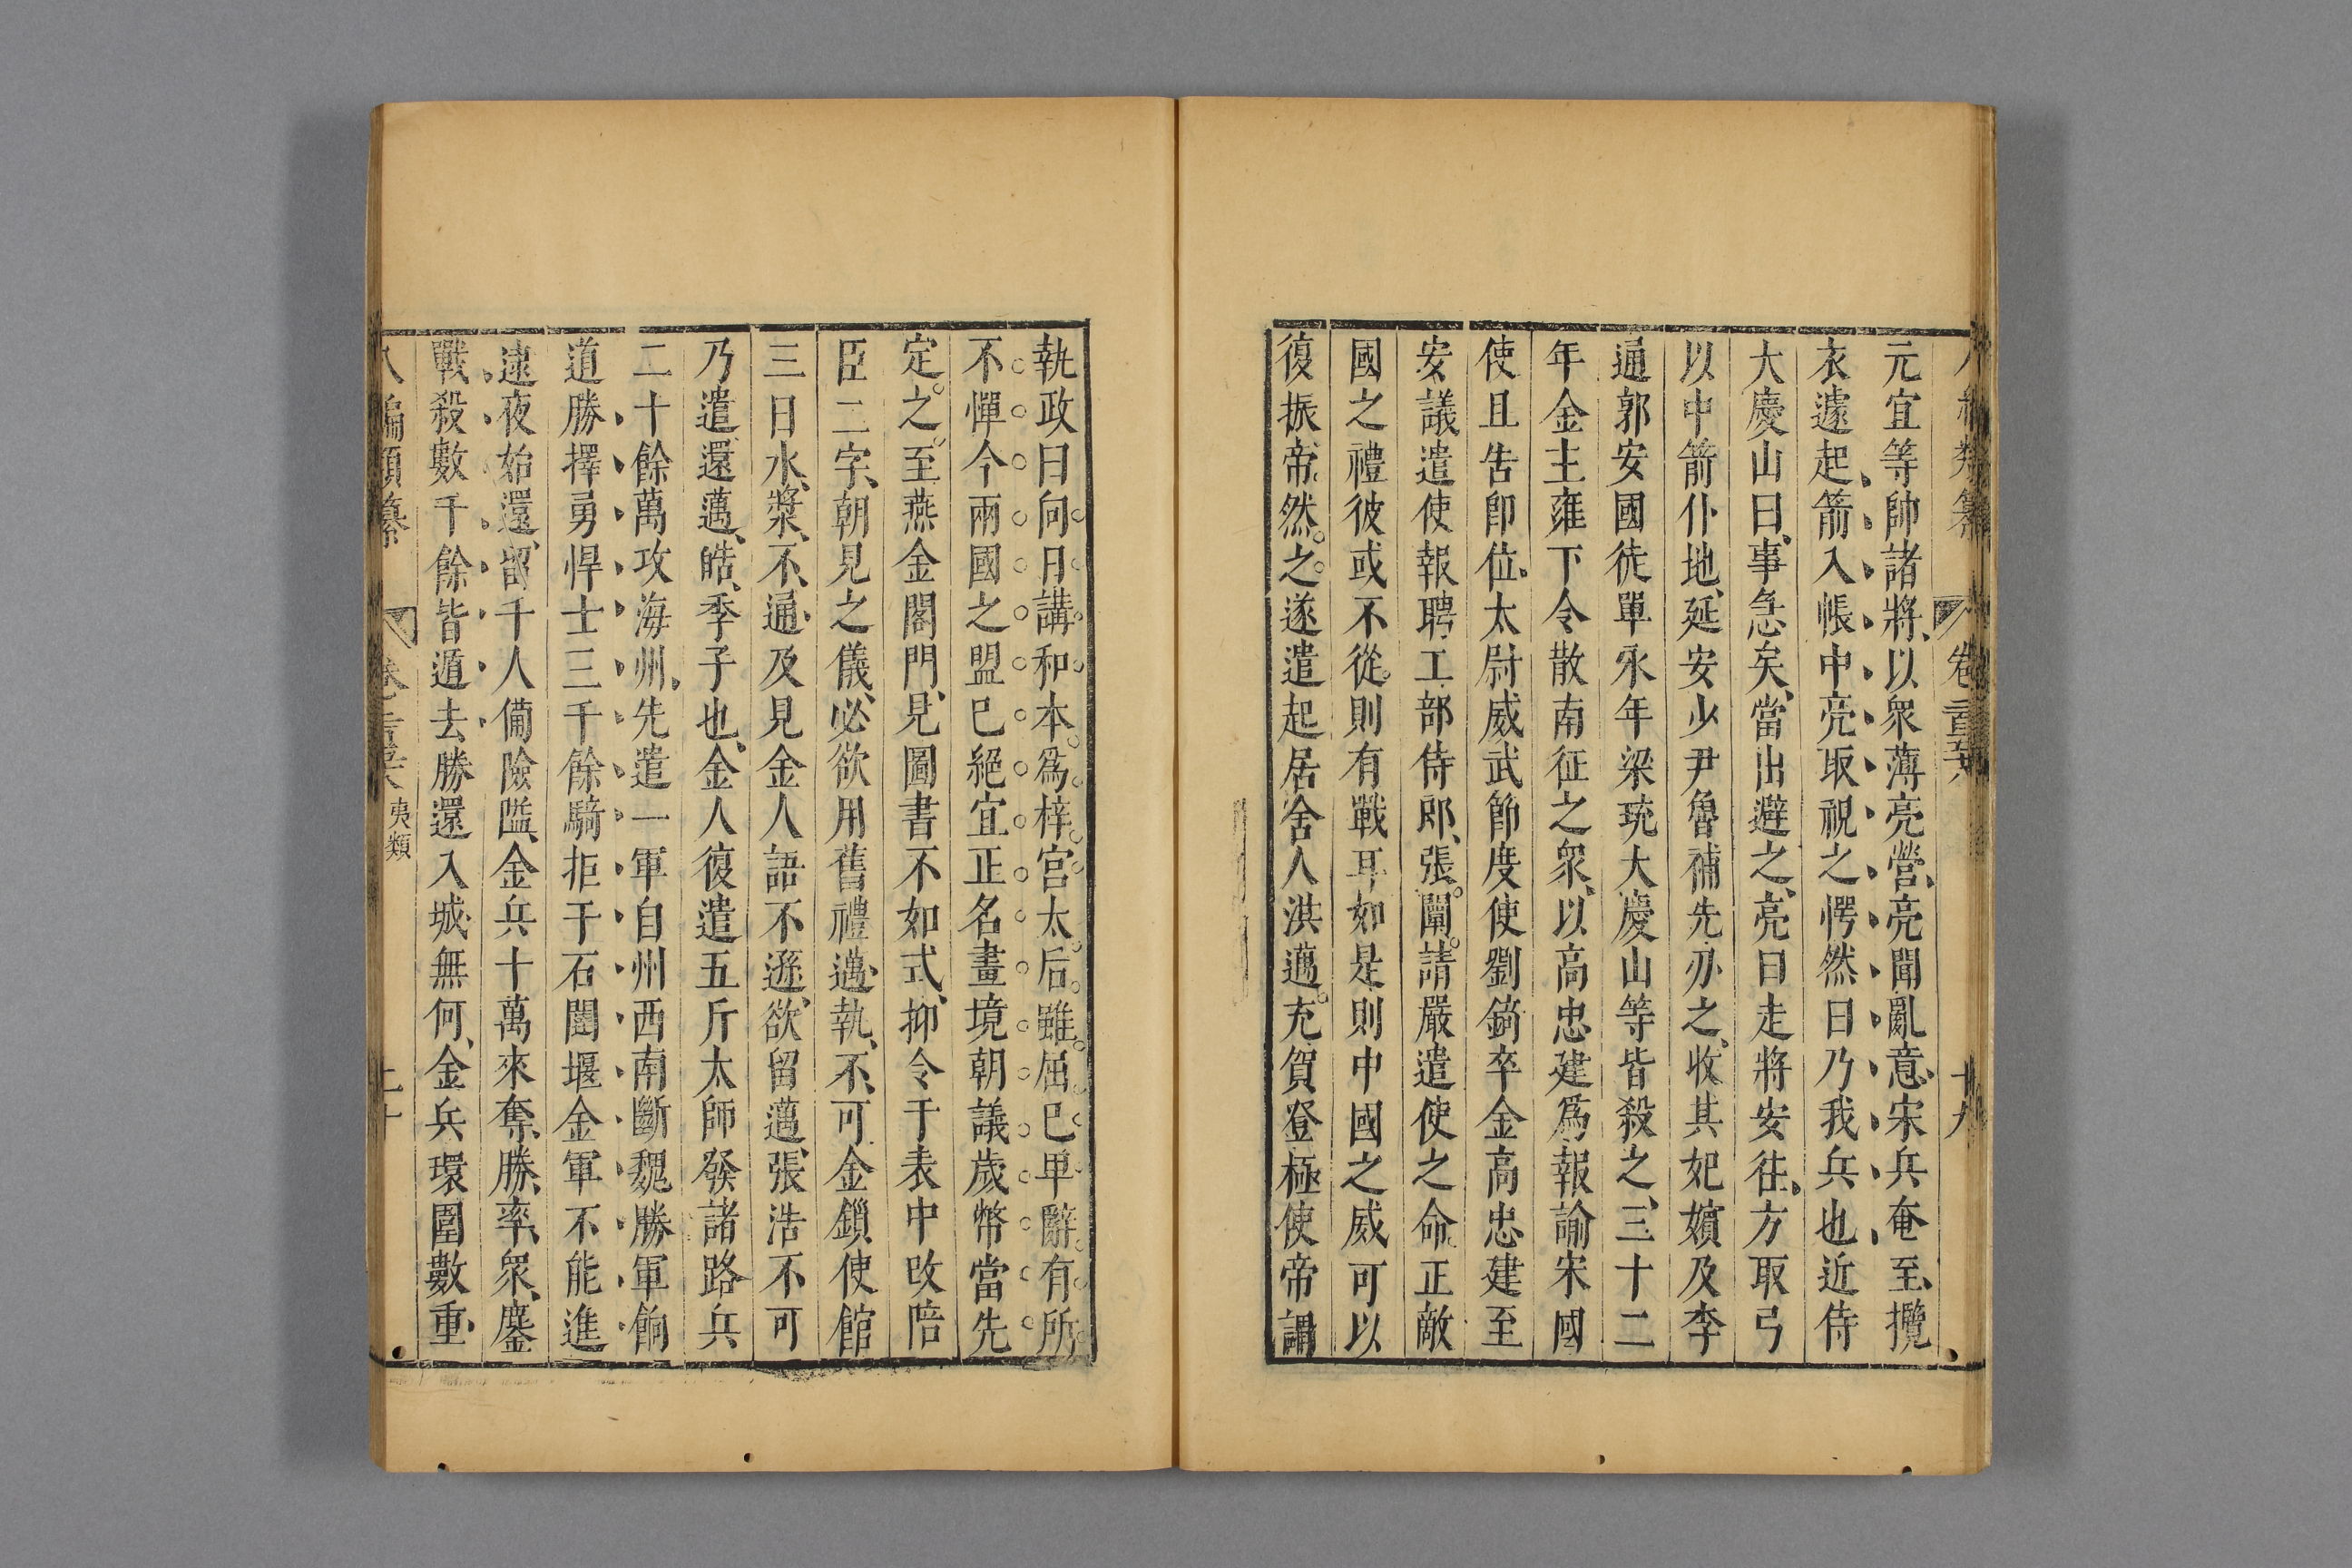 元宜等帥諸將以眾薄亮營亮聞亂意宋兵奄至攬
衣遽起箭入帳中亮取視之愕然曰乃我兵也近侍
大慶山曰事急矣當出避之亮曰走將安往方取弓
以中箭仆地延安少尹魯補先刅之收其妃嬪及李
通郭安國徒單永年梁珫大慶山等皆殺之三十二
年金主雍下令散南征之眾以高忠建爲報諭宋國
使且告卽位太尉威武節度使劉錡卒金高忠建至
安議遣使報聘工部侍郎張闡請嚴遣使之命正敵
國之禮彼或不從則有戰耳如是則中國之威可以
復振帝然之遂遣起居舍人洪邁充賀登極使帝謂
執政曰向日講和本爲梓宮太后雖屈巳卑辭有所
不憚今兩國之盟巳絕宜正名畫境朝議歲幣當先
定之至燕金閤門見國書不如式抑令于表中改陪
臣二字朝見之儀必欲用舊禮邁執不可金鎖使館
三日水漿不通及見金人語不遜欲留邁張浩不可
乃遣還邁皓季子也金人復遣五斤太師發諸路兵
二十餘萬攻海州先遣一軍自州西南斷魏勝軍餉
道勝擇勇悍士三千餘騎拒于石闥堰金軍不能進
逮夜始還留千人備險隘金兵十萬來奪勝率眾鏖
戰殺數千餘皆遁去勝還入城無何金兵環圍數重
八編類纂 卷二百 夷類